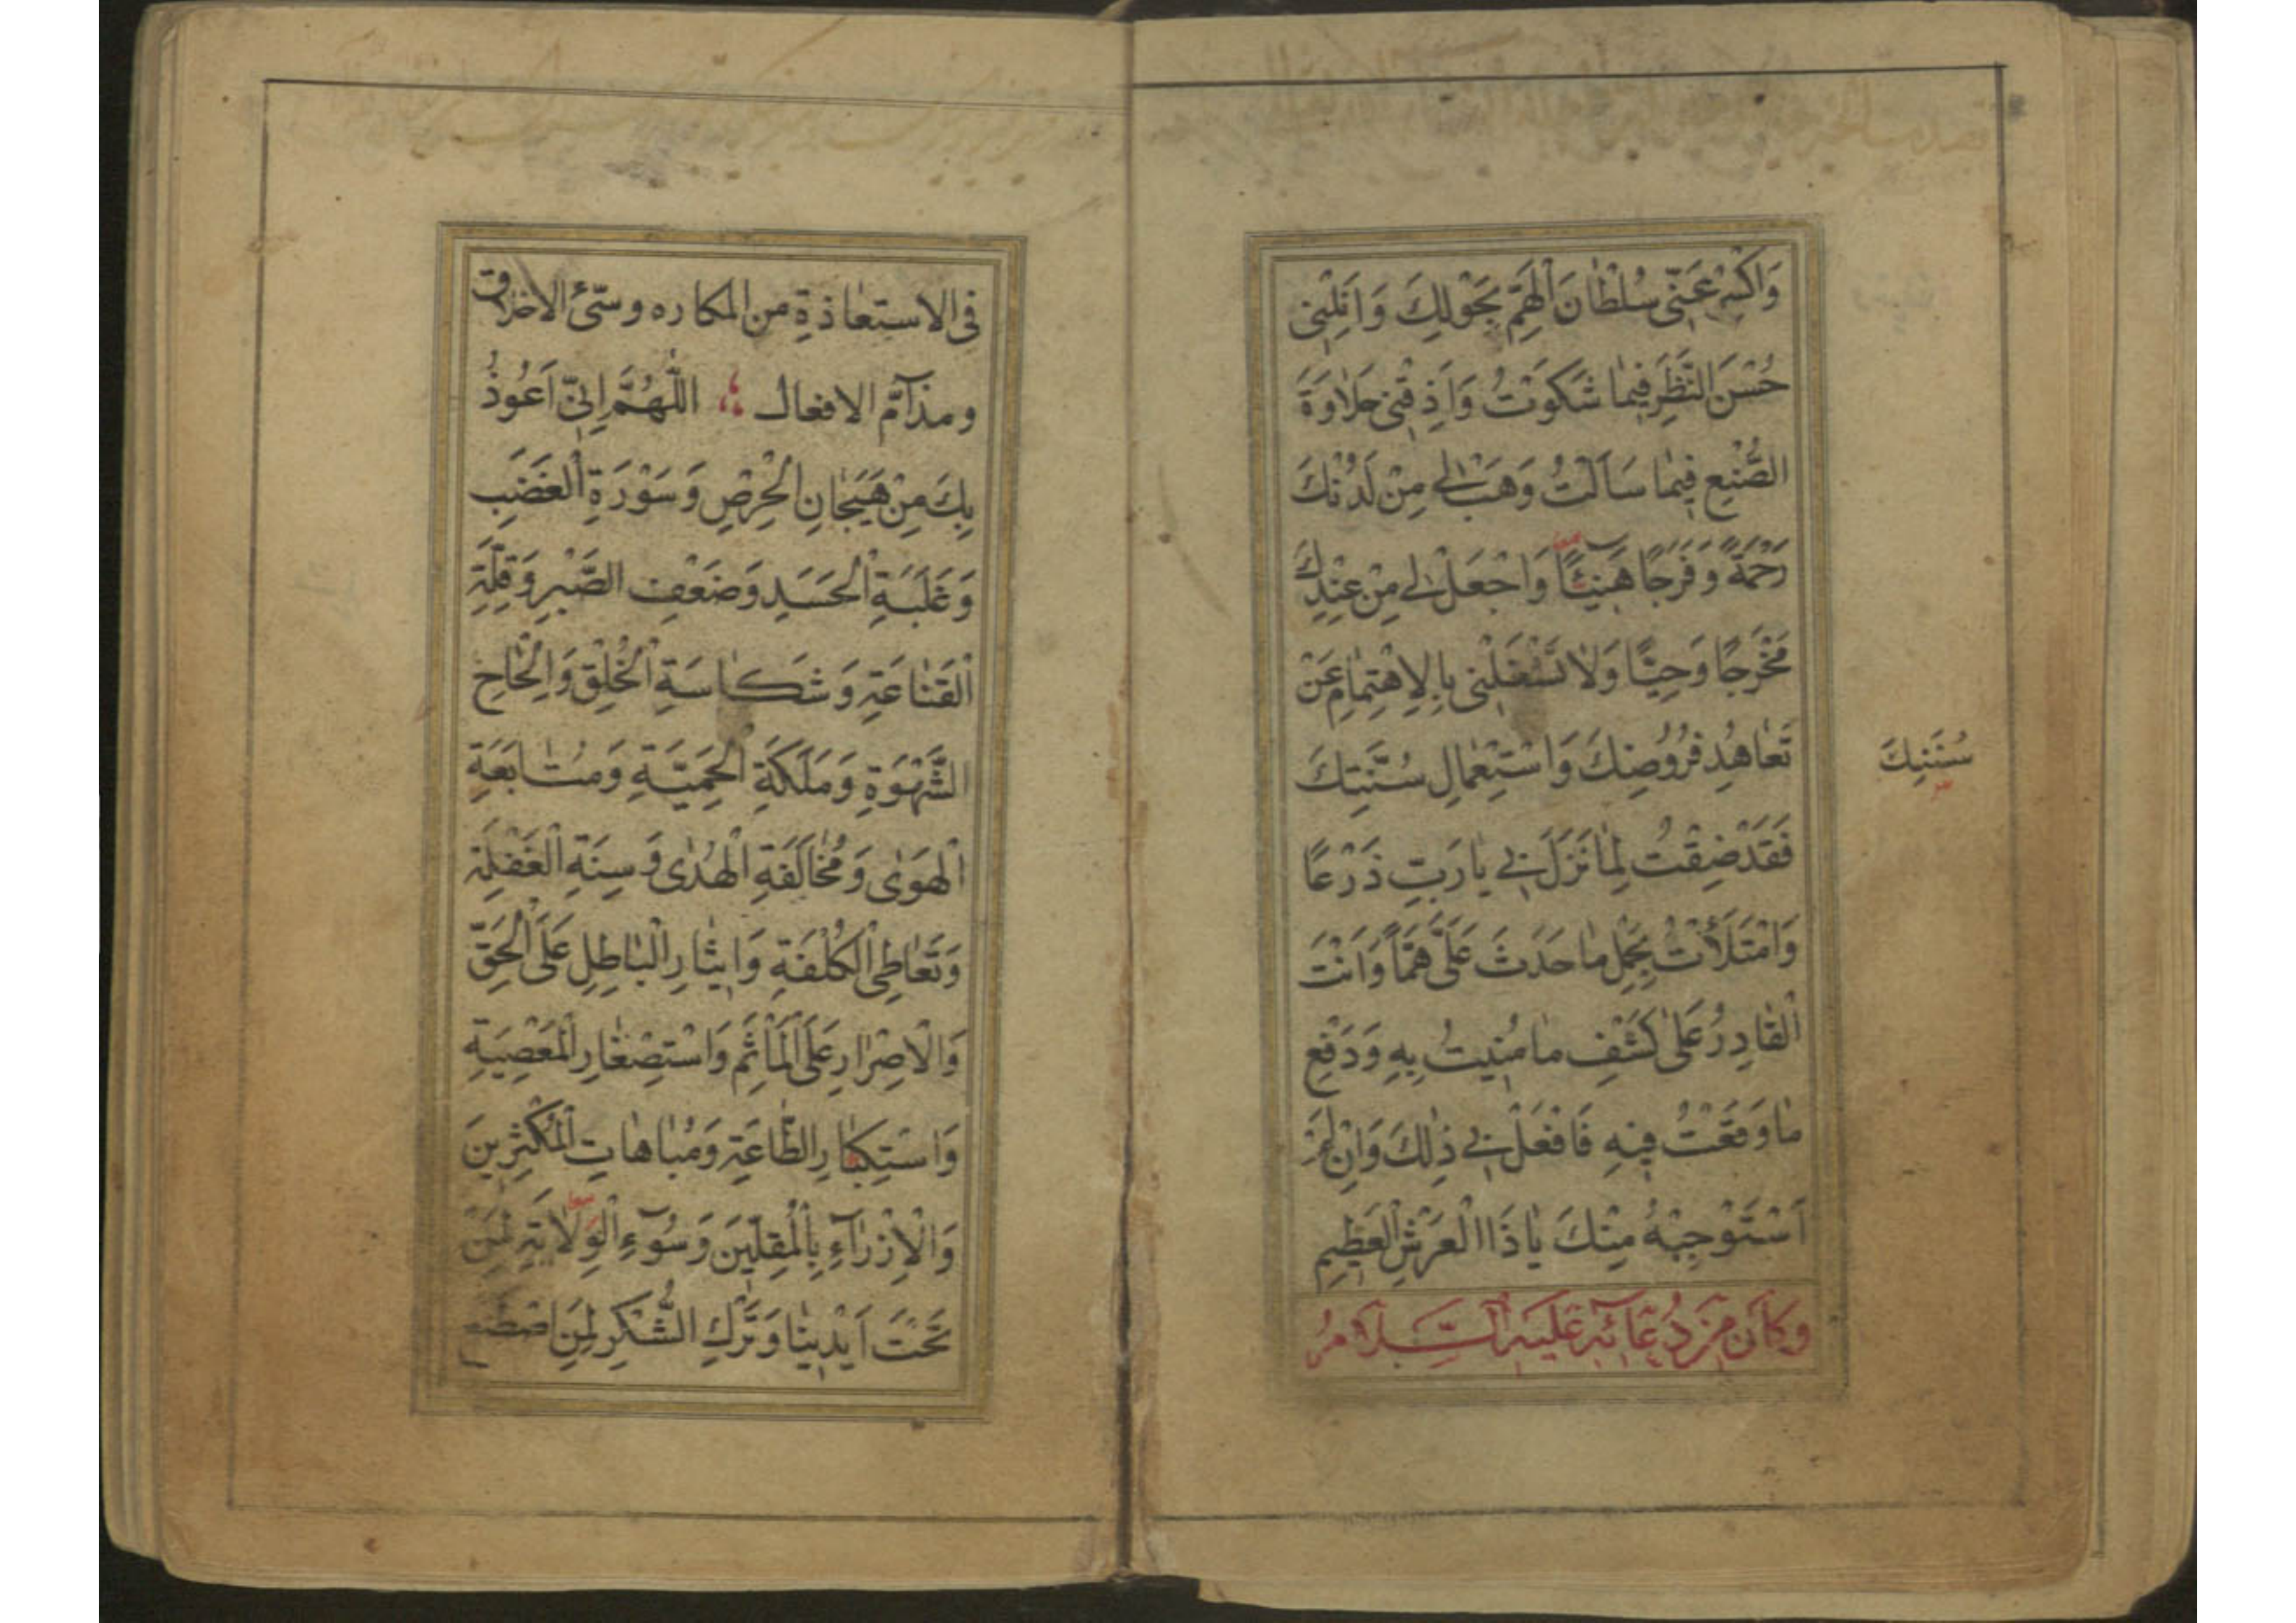 وَاكْسِرْ عَنّى سُلْطٰانَ الْهَمِّ بِحَوْلِكَ وَاَنِلْنِى
حُسْنَ النَّظَرِ فِيمٰا شَكَوْتُ وَاَذِقْنِى حَلاٰوَةَ
الصُّنْعِ فِيمٰا سَاَلْتُ وَهَبْ لِى مِنْ لَدُنْكَ
رَحْمَةً وَفَرَجًا هَنِيئًا وَاجْعَلْ لِى مِنْ عِنْدِكَ
مَخْرَجًا وَحِيًّا وَلاٰ تَشْغَلْنِى بِالاِهْتِمٰامِ عَنْ
تَعٰاهُدِ فُرُوضِكَ وَاسْتِعْمٰالِ سُنَّتِكَ
سُنَنِكَ
فَقَدْ ضِقْتُ لِمٰا نَزَلَ بِى يٰا رَبِّ ذَرْعًا
وَامْتَلَأْتُ بِحَمْلِ مٰا حَدَثَ عَلَىَّ هَمًّا وَاَنْتَ
الْقٰادِرُ عَلىٰ كَشْفِ مٰا مُنِيتُ بِهِ وَدَفْعِ
مٰا وَقَعْتُ فِيهِ فَافْعَلْ بِى ذٰلِكَ وَاِنْ لَمْ
اَسْتَوْجِبْهُ مِنْكَ يٰا ذَا الْعَرْشِ الْعَظِيمِ
وَكَانَ مِنْ دُعَائِهِ عَلَيْهِ السَّلَامُ
فى الاستعاذة من المكاره وسّئ الاخلاق
ومذآمّ الافعال اللّٰهُمَّ اِنِّى اَعُوذُ
بِكَ مِنْ هَيَجٰانِ الْحِرْصِ وَسَوْرَةِ الْغَضَبِ
وَغَلَبَةِ الْحَسَدِ وَضَعْفِ الصَّبْرِ وَقِلَّةِ
الْقَنٰاعَةِ وَشَكٰاسَةِ الْخُلْقِ وَاِلْحٰاحِ
الشَّهْوَةِ وَمَلَكَةِ الْحَمِيَّةِ وَمُتٰابَعَةِ
الْهَوىٰ وَمُخٰالَفَةِ الْهُدىٰ وَسِنَةِ الْغَفْلَةِ
وَتَعٰاطِى الْكُلْفَةِ وَاِيثٰارِ الْبٰاطِلِ عَلَى الْحَقِّ
وَالْاِصْرٰارِ عَلَى الْمَأْثَمِ وَاسْتِصْغٰارِ الْمَعْصِيَةِ
وَاسْتِكْبٰارِ الطّٰاعَةِ وَمُبٰاهٰاتِ الْمُكْثِرِينَ
وَالْاِزْرٰآءِ بِالْمُقِلِّينَ وَسُوٓءِ الْوِلاٰيَةِ لِمَنْ
تَحْتَ اَيْدِينٰا وَتَرْكِ الشُّكْرِ لِمَنِ اصْطَنَعَ